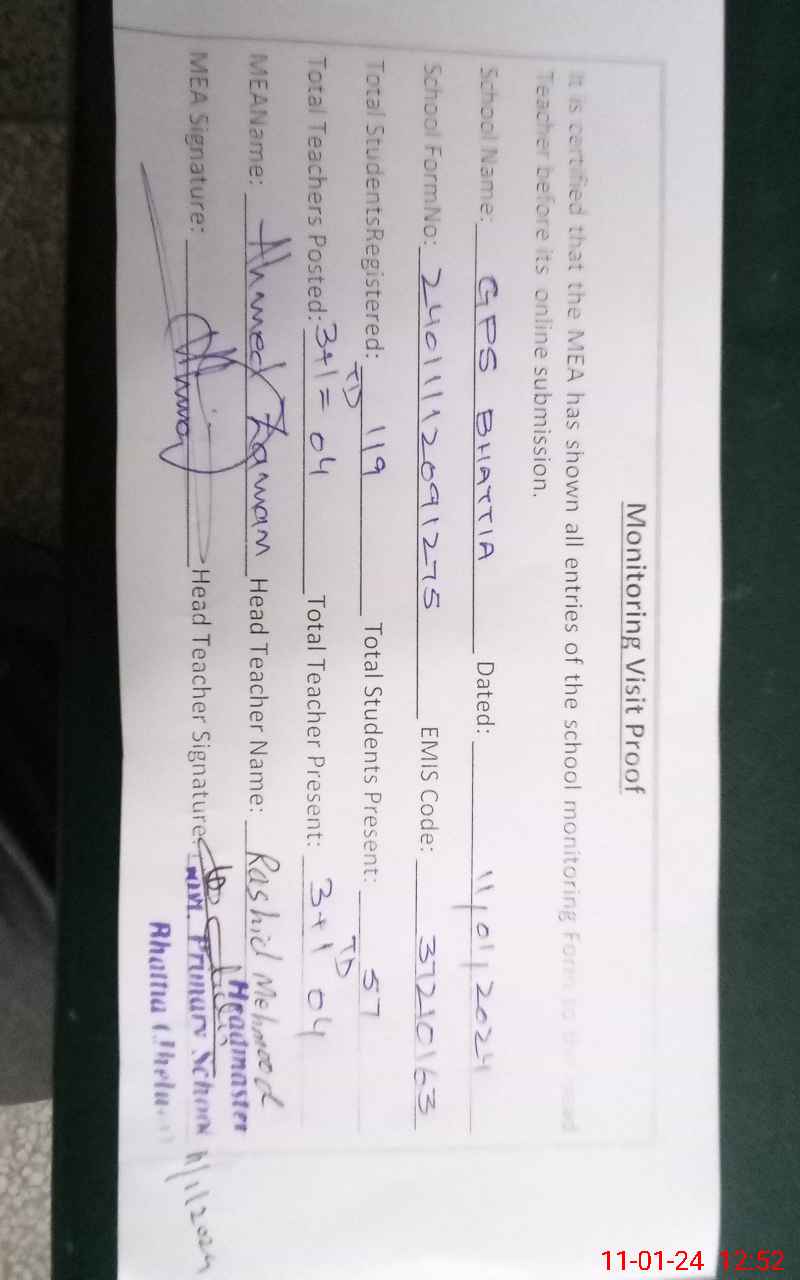 Monitoring Visit Proof
It is certified that the MEA has shown all entries of the school monitoring Form to the Head
Teacher before its online submission.
School Name: GPS BHATTIA Dated: 11/01/2024
School FormNo: 24011112091275 EMIS Code: 37210163
Total StudentsRegistered: 119 Total Students Present: 57
Total Teachers Posted: 3+1 TD = 04 Total Teacher Present: 3+1 TD 04
MEAName: Ahmed Zaman Head Teacher Name: Rashid Mehmood
MEA Signature: Head Teacher Signature:
Headmaster
Primary School 11/1/2024
11-01-24 12:52